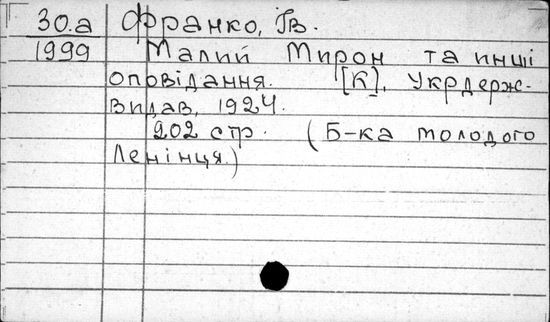 30.а Франко, Ів.
1999 Малий Мирон та инші
оповідання. [К]. Укрдерж-
видав, 1924.
202 стр. (Б-ка молодого
Ленінця.)